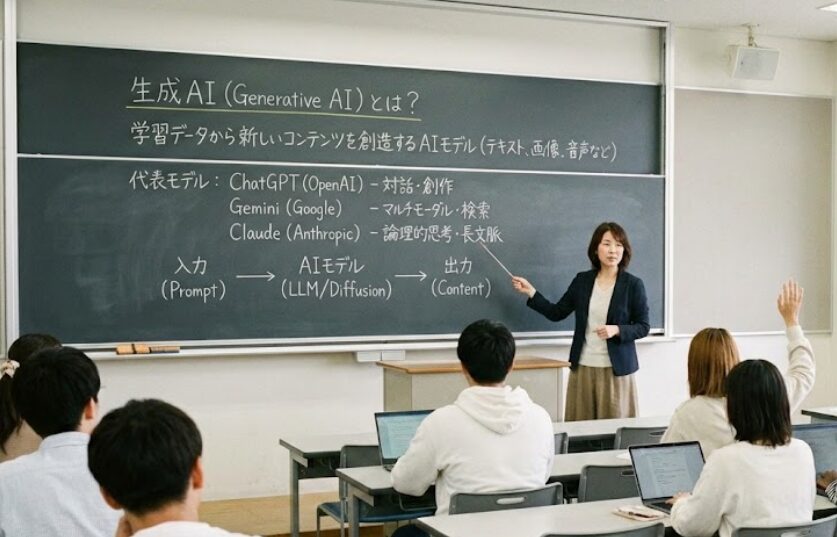 生成AI (Generative AI) とは？
学習データから新しいコンテンツを創造するAIモデル (テキスト、画像、音声など)
代表モデル： ChatGPT (OpenAI) － 対話・創作
Gemini (Google) － マルチモーダル・検索
Claude (Anthropic) － 論理的思考・長文脈
入力 → AIモデル → 出力
(Prompt) (LLM/Diffusion) (Content)